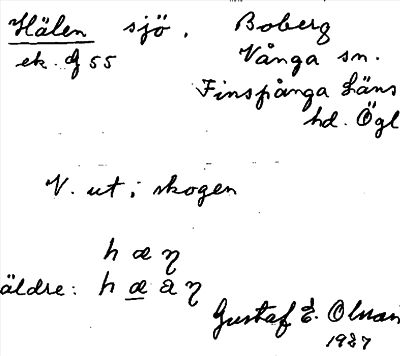 Hälen sjö. Boberg
ek. df 55 Vånga sn.
Finspånga Läns
hd. Ögl
V. ut i skogen
h æ η
äldre: h æ a η
Gustaf E. Olsson
1927